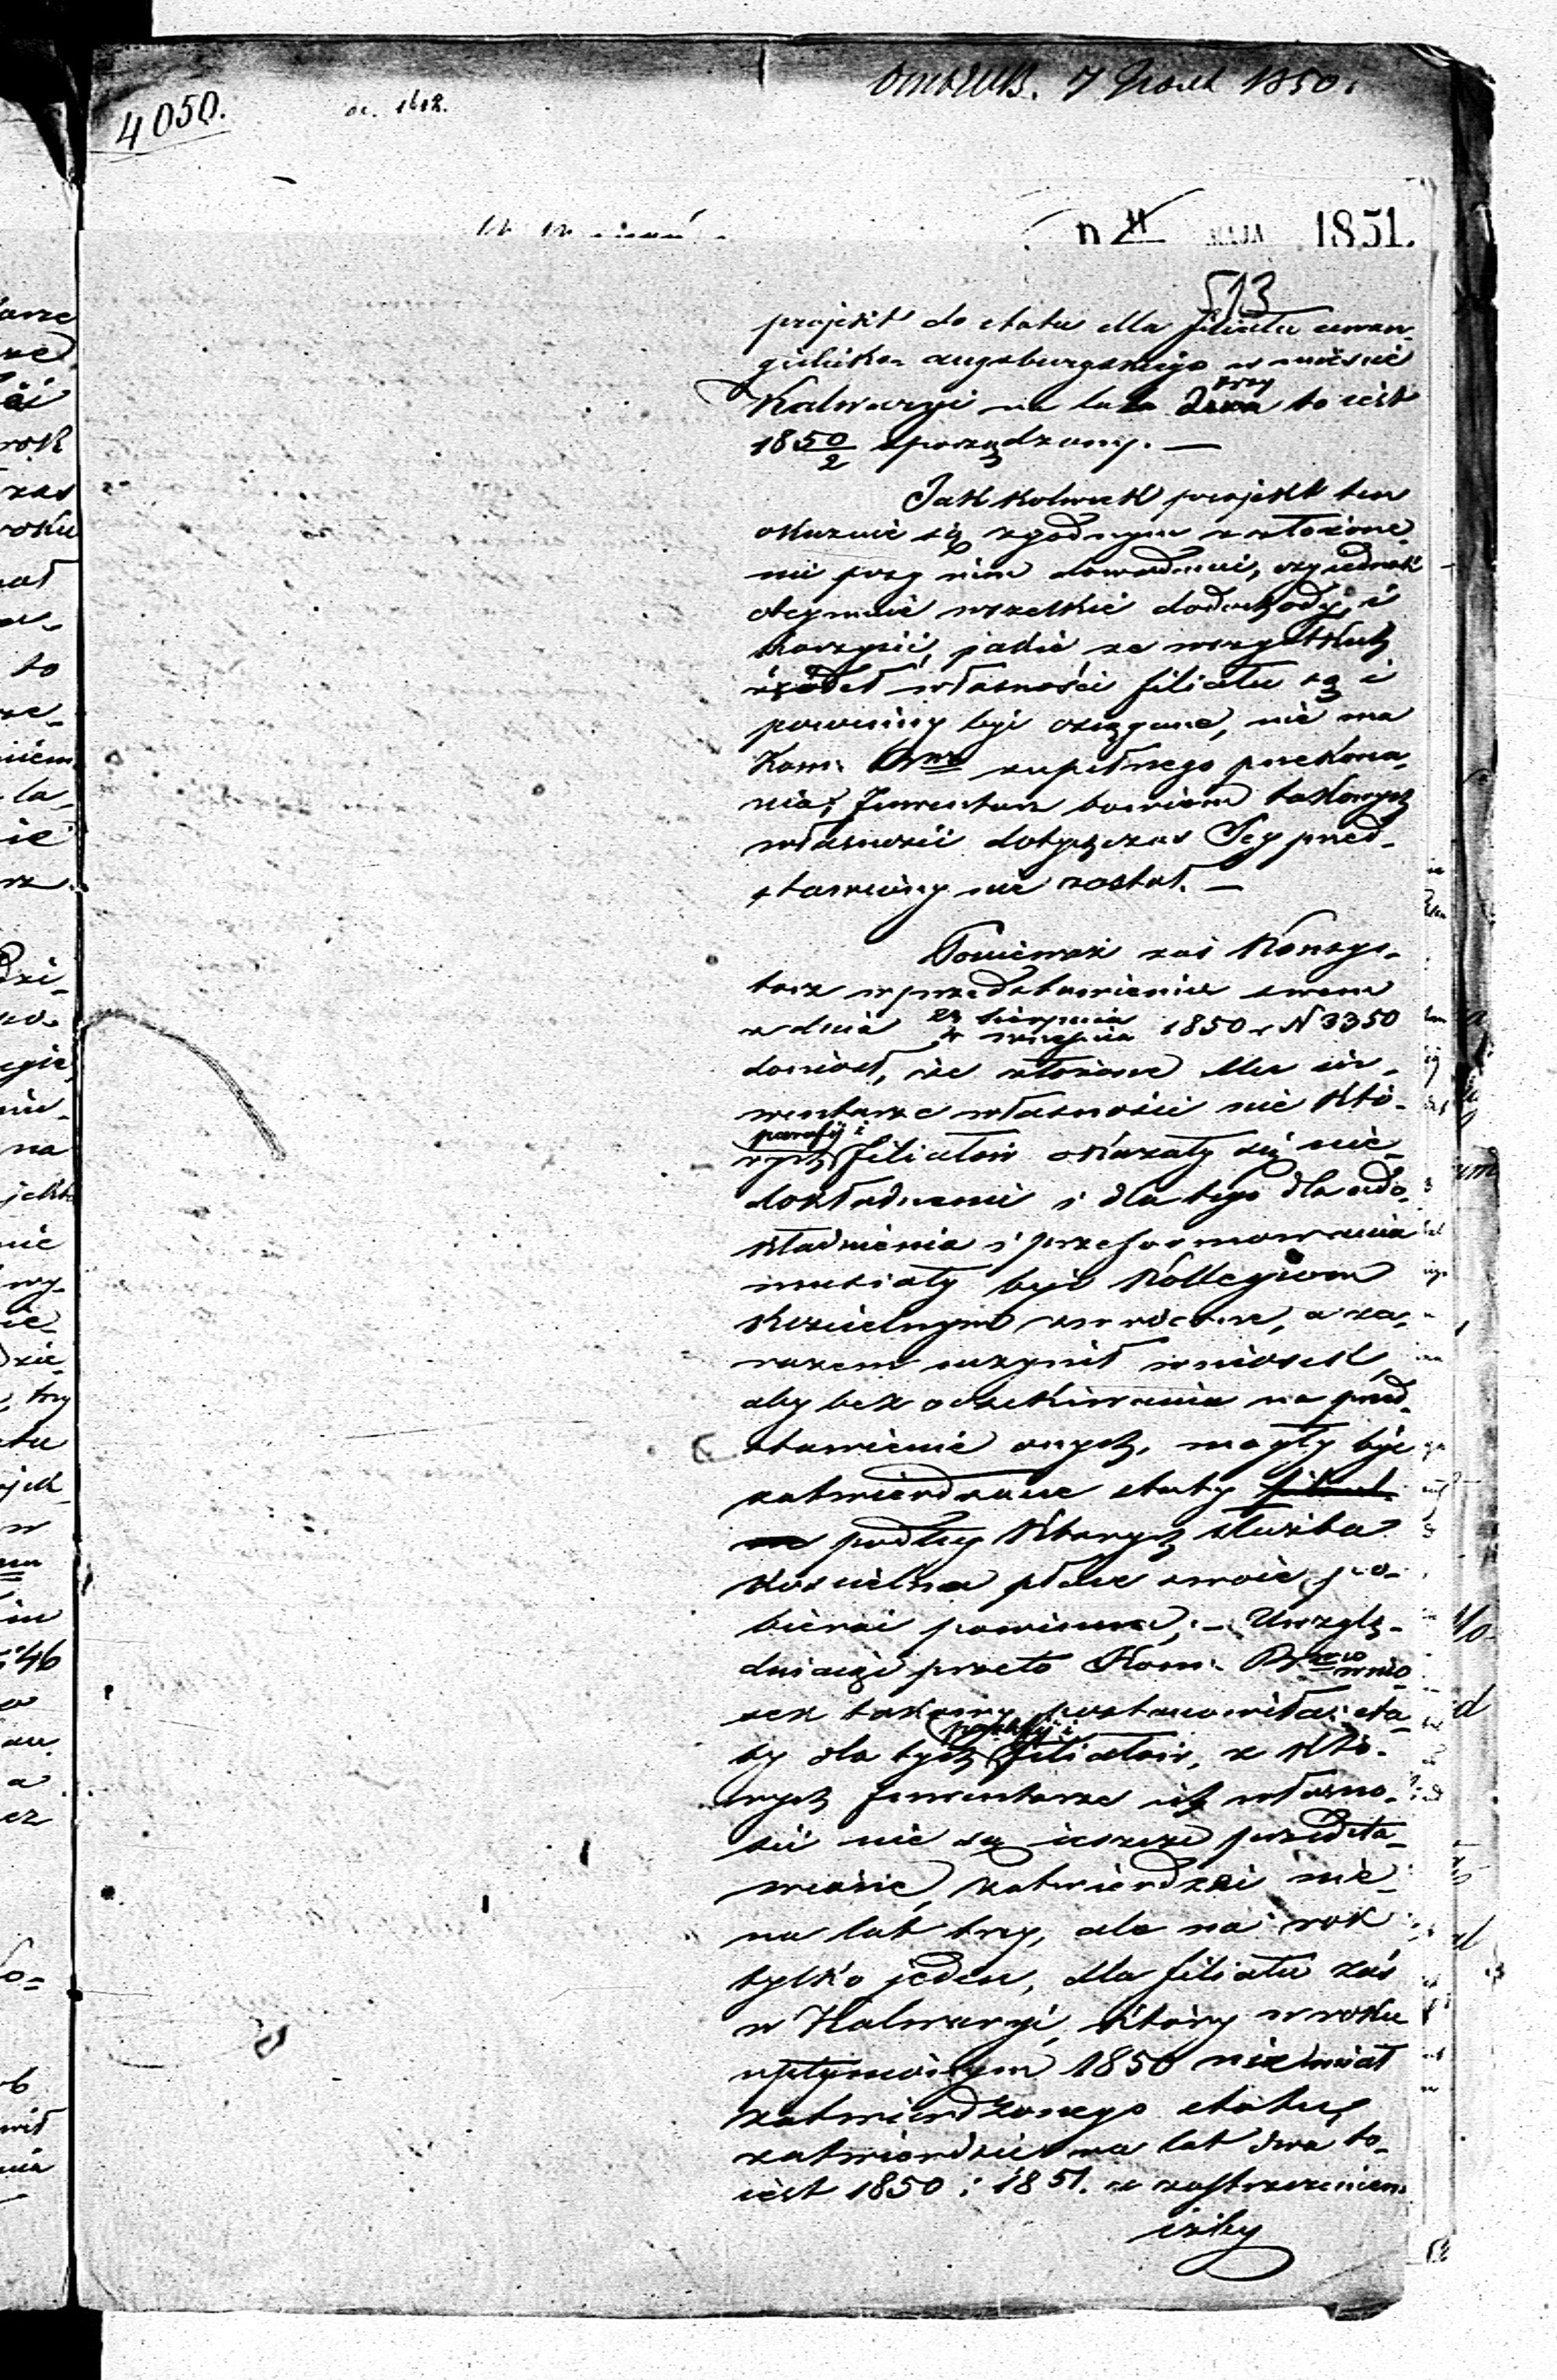 4050.
1850.
D 11 MAJA 1851.
513
projekt do etatu dla filiału ewan-
gielicko-augsburgskiego w mieście
Kalwaryi na lata dwa trzy to iest
1850/2 sporządzony. —
Jakkolwiek projekt ten
okazuie się zgodnym z złożone-
mi przy nim dowodami, czy iednak
obeymuie wszelkie dochody, i
korzyści, jakie ze wszystkich
źródeł własności filiału są i
powinny być osiągane, nie ma
Kom: zupełnego przekona-
nia, Inwentarz bowiem takowych
własności dotychczas Jey przed-
stawiony nie został. —
Ponieważ zaś Konsys-
tarz w przedstawieniu swem
z dnia 23 sierpnia / 4 września 1850 r N 3350
doniosł, że złożone Mu in-
wentarze własności nie któ-
rych parafij i filiałow okazały się nie-
dokładnemi i dla tego dla udo-
kładnienia i przeformowania
musiały być Kollegiom
kościelnym zwrócone, a za-
razem uczynił wniosek,
aby bez oczekiwania na przed-
stawienie onych, mogły być
zatwierdzane etaty
podług których służba
kościelna płace swoie po-
bierać powinna, — Uwzglę-
dniaiąc przeto Kom: wnio-
sek takowy postanowiła: eta-
ty dla tych parafij i filiałow, z któ-
rych Inwentarze ich własno-
ści nie są ieszcze przedsta-
wione, zatwierdzać nie
na lat trzy, ale na rok
tylko jeden, dla filiału zaś
w Kalwaryi, który w roku
upłynionym 1850 nie miał
zatwierdzonego etatu,
zatwierdzić na lat dwa to
iest 1850 i 1851. z zastrzeżeniem
iżby